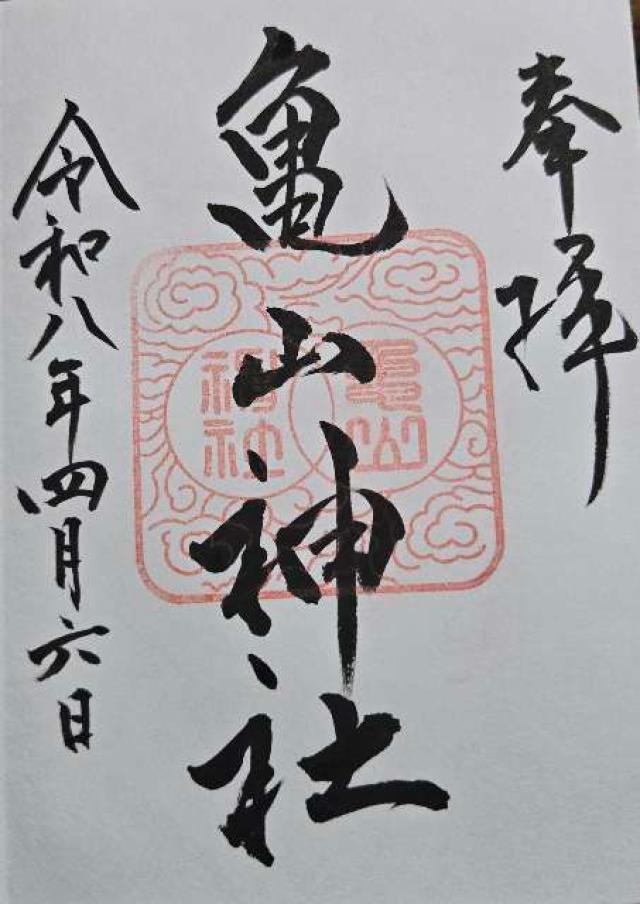 奉拝
亀山神社
亀山
神社
令和八年四月六日